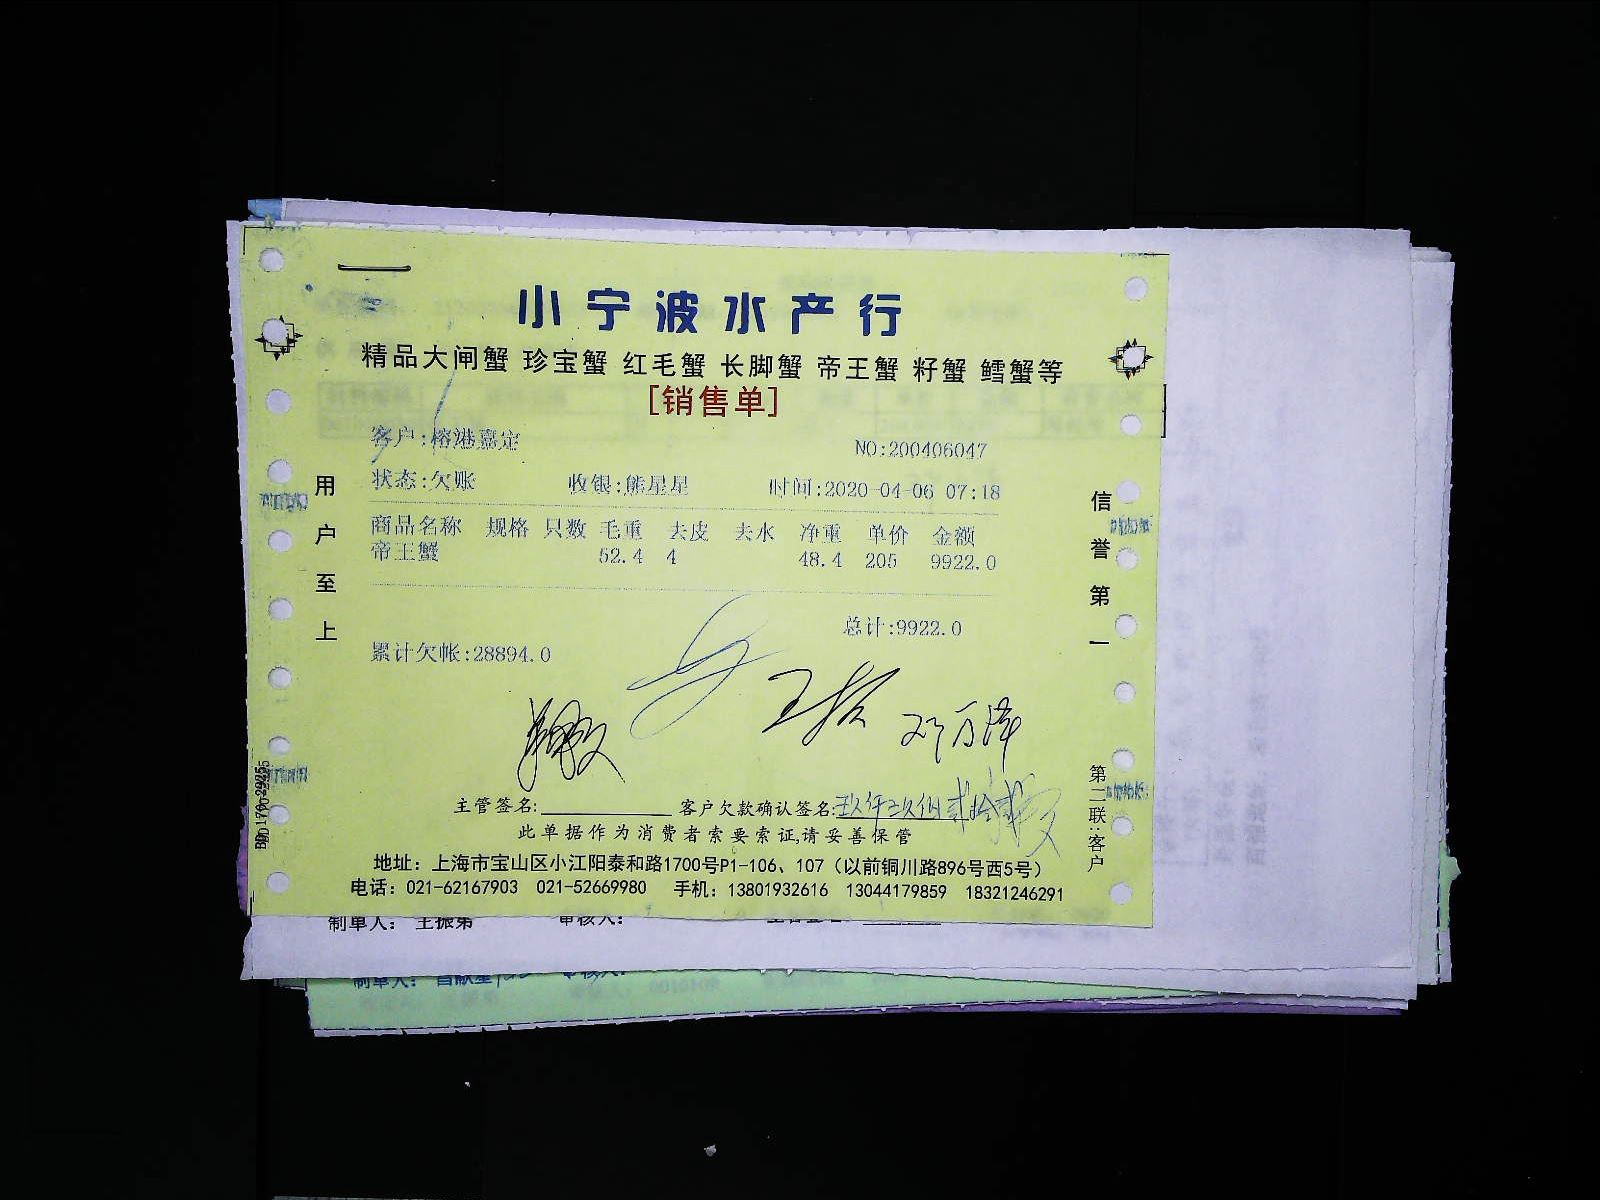 小宁波水产行
精品大闸蟹 珍宝蟹 红毛蟹 长脚蟹 帝王蟹 籽蟹 鳕蟹等
[销售单]
客户:榕港嘉定
NO:200406047
状态:欠账 收银:熊星星 时间:2020-04-06 07:18
商品名称 规格 只数 毛重 去皮 去水 净重 单价 金额
帝王蟹 52.4 4 48.4 205 9922.0
总计:9922.0
累计欠帐:28894.0
用户至上
信誉第一
第二联:客户
主管签名: 客户欠款确认签名:玖仟玖佰贰拾贰
此单据作为消费者索要索证,请妥善保管
地址：上海市宝山区小江阳泰和路1700号P1-106、107（以前铜川路896号西5号）
电话：021-62167903 021-52669980 手机：13801932616 13044179859 18321246291
制单人： 王振第 审核人：
制单人： 审核人：